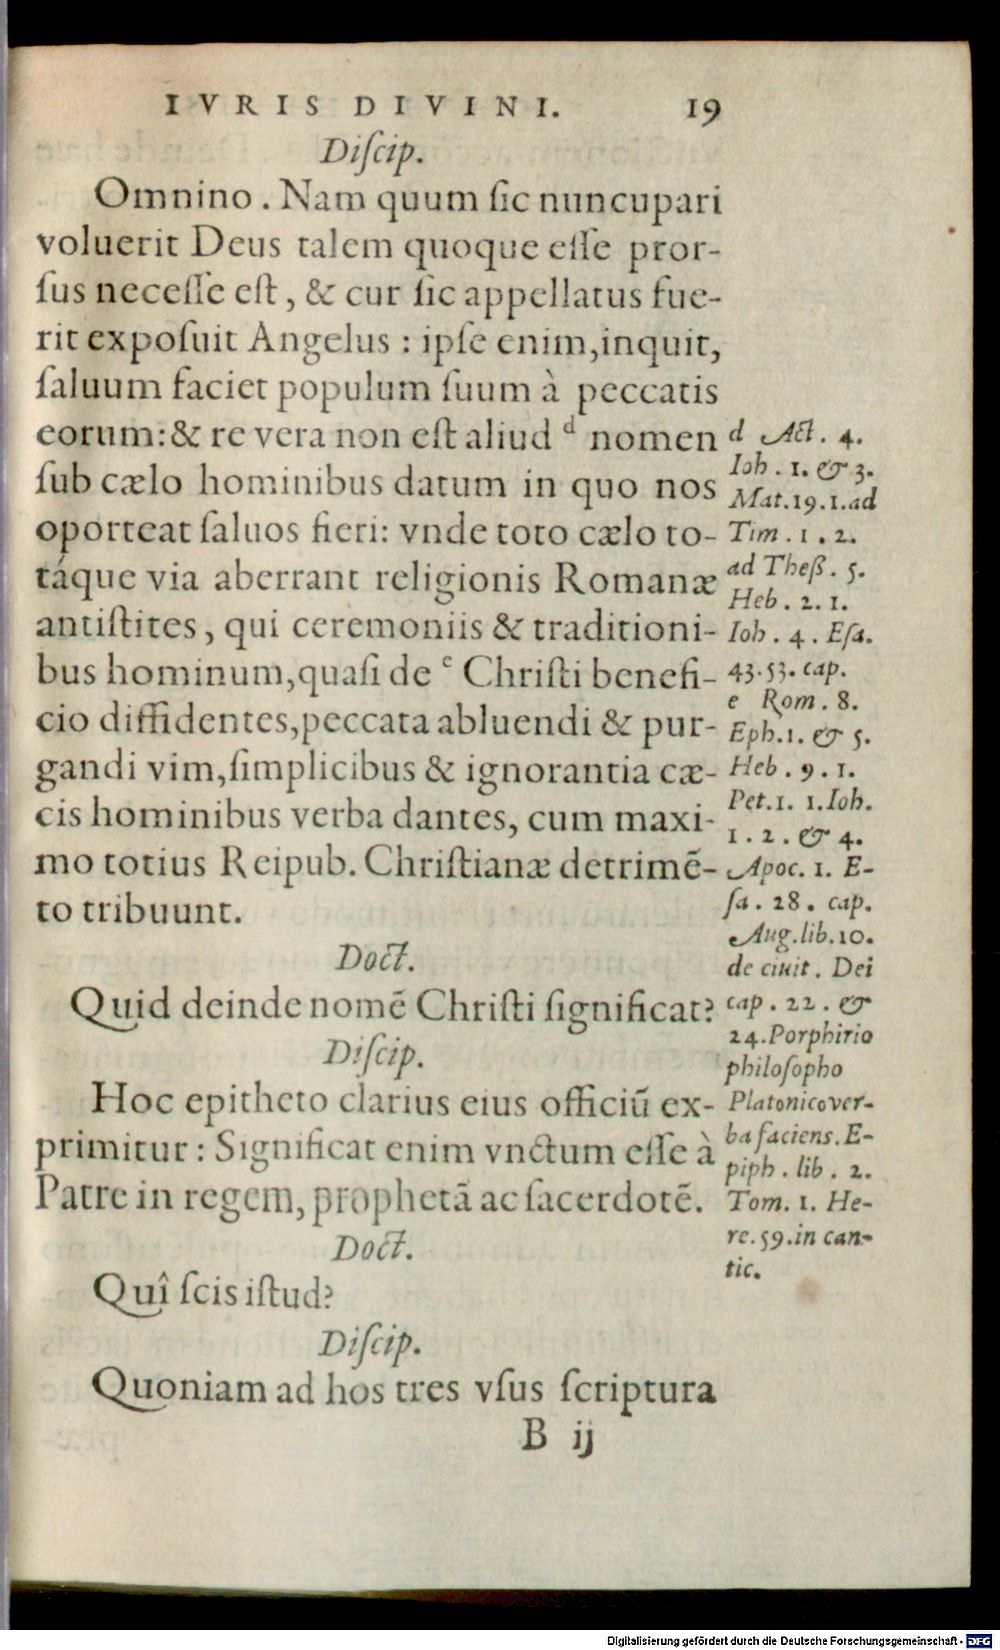 IVRIS DIVINI. 19
Diſcip.
Omnino. Nam quum ſic nuncupari
voluerit Deus talem quoque eſſe pror-
ſus neceſſe eſt, & cur ſic appellatus fue-
rit expoſuit Angelus : ipſe enim, inquit,
ſaluum faciet populum ſuum à peccatis
eorum: & re vera non eſt aliud d nomen
ſub cælo hominibus datum in quo nos
oporteat ſaluos fieri: vnde toto cælo to-
táque via aberrant religionis Romanæ
antiſtites, qui ceremoniis & traditioni-
bus hominum, quaſi de e Chriſti benefi-
cio diffidentes, peccata abluendi & pur-
gandi vim, ſimplicibus & ignorantia cæ-
cis hominibus verba dantes, cum maxi-
mo totius Reipub. Chriſtianæ detrimē-
to tribuunt.
Doct.
Quid deinde nomē Chriſti ſignificat?
Diſcip.
Hoc epitheto clarius eius officiū ex-
primitur : Significat enim vnctum eſſe à
Patre in regem, prophetā ac ſacerdotē.
Doct.
Quî ſcis iſtud?
Diſcip.
Quoniam ad hos tres vſus ſcriptura
B ij
d Act. 4.
Ioh. 1. & 3.
Mat. 19. 1. ad
Tim. 1. 2.
ad Theß. 5.
Heb. 2. 1.
Ioh. 4. Eſa.
43. 53. cap.
e Rom. 8.
Eph. 1. & 5.
Heb. 9. 1.
Pet. 1. 1. Ioh.
1. 2. & 4.
Apoc. 1. E-
ſa. 28. cap.
Aug. lib. 10.
de ciuit. Dei
cap. 22. &
24. Porphirio
philoſopho
Platonico ver-
ba faciens. E-
piph. lib. 2.
Tom. 1. He-
re. 59. in can-
tic.
Digitalisierung gefördert durch die Deutsche Forschungsgemeinschaft - DFG